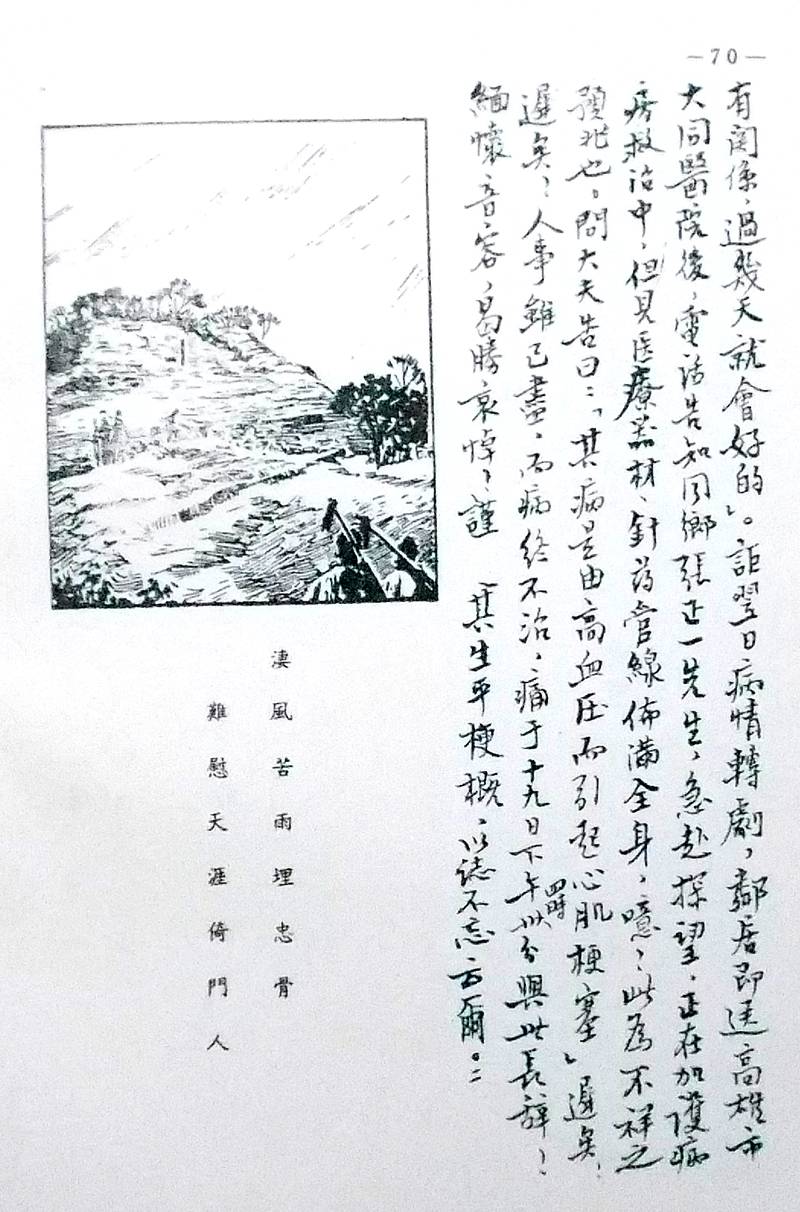 —70—
有関係，過幾天就會好的」。詎翌日病情轉劇，鄰居即送高雄市
大同醫院後，電話告知同鄉張正一先生，急赴探望，正在加護病
房救治中，但見医療器材、針葯管線佈滿全身，噫！此為不祥之
預兆也。問大夫告曰：「其病是由高血压而引起心肌梗塞」遲矣！
遲矣！人事雖已盡，而病終不治，痛于十九日下午四時卅分與世長辞！
緬懷音容，曷勝哀悼！謹 其生平梗概，以誌不忘云爾。
凄風苦雨埋忠骨
難慰天涯倚門人